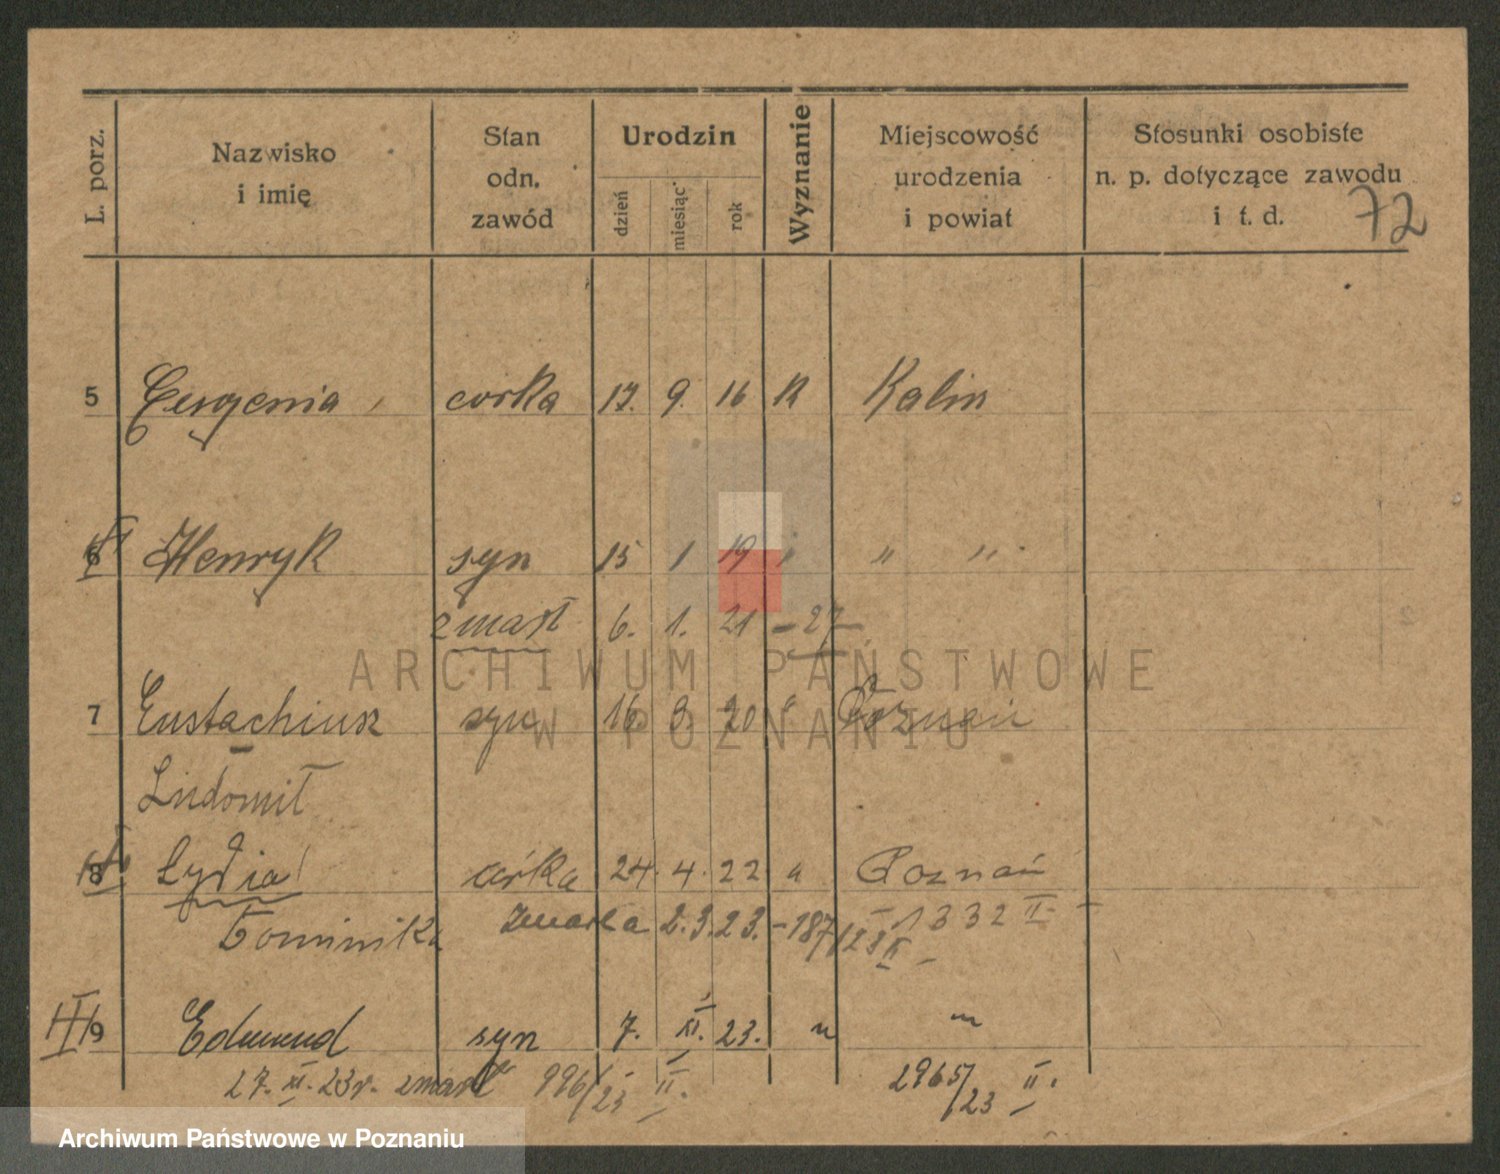 L. porz.
Nazwisko i imię
Stan odn. zawód
Urodzin
dzień miesiąc rok
Wyznanie
Miejscowość urodzenia i powiat
Stosunki osobiste n. p. dotyczące zawodu i t. d.
72
5 Eugenia córka 17. 9. 16 K Kalisz
6 Henryk syn 15 1 19 " " "
zmarł 6. 1. 21 – 27
ARCHIWUM PAŃSTWOWE
7 Eustachiusz syn 16 9. 20 " Poznań
W POZNANIU
Ludomił
8 Łydia córka 24. 4. 22 " Poznań
Dominika zmarła 2. 3. 23. – 187/23 II – – 1332 II –
9 Edmund syn 7. XI. 23. " "
27. XI. 23 r. zmarł 996/23 II. 2965/23 II.
Archiwum Państwowe w Poznaniu